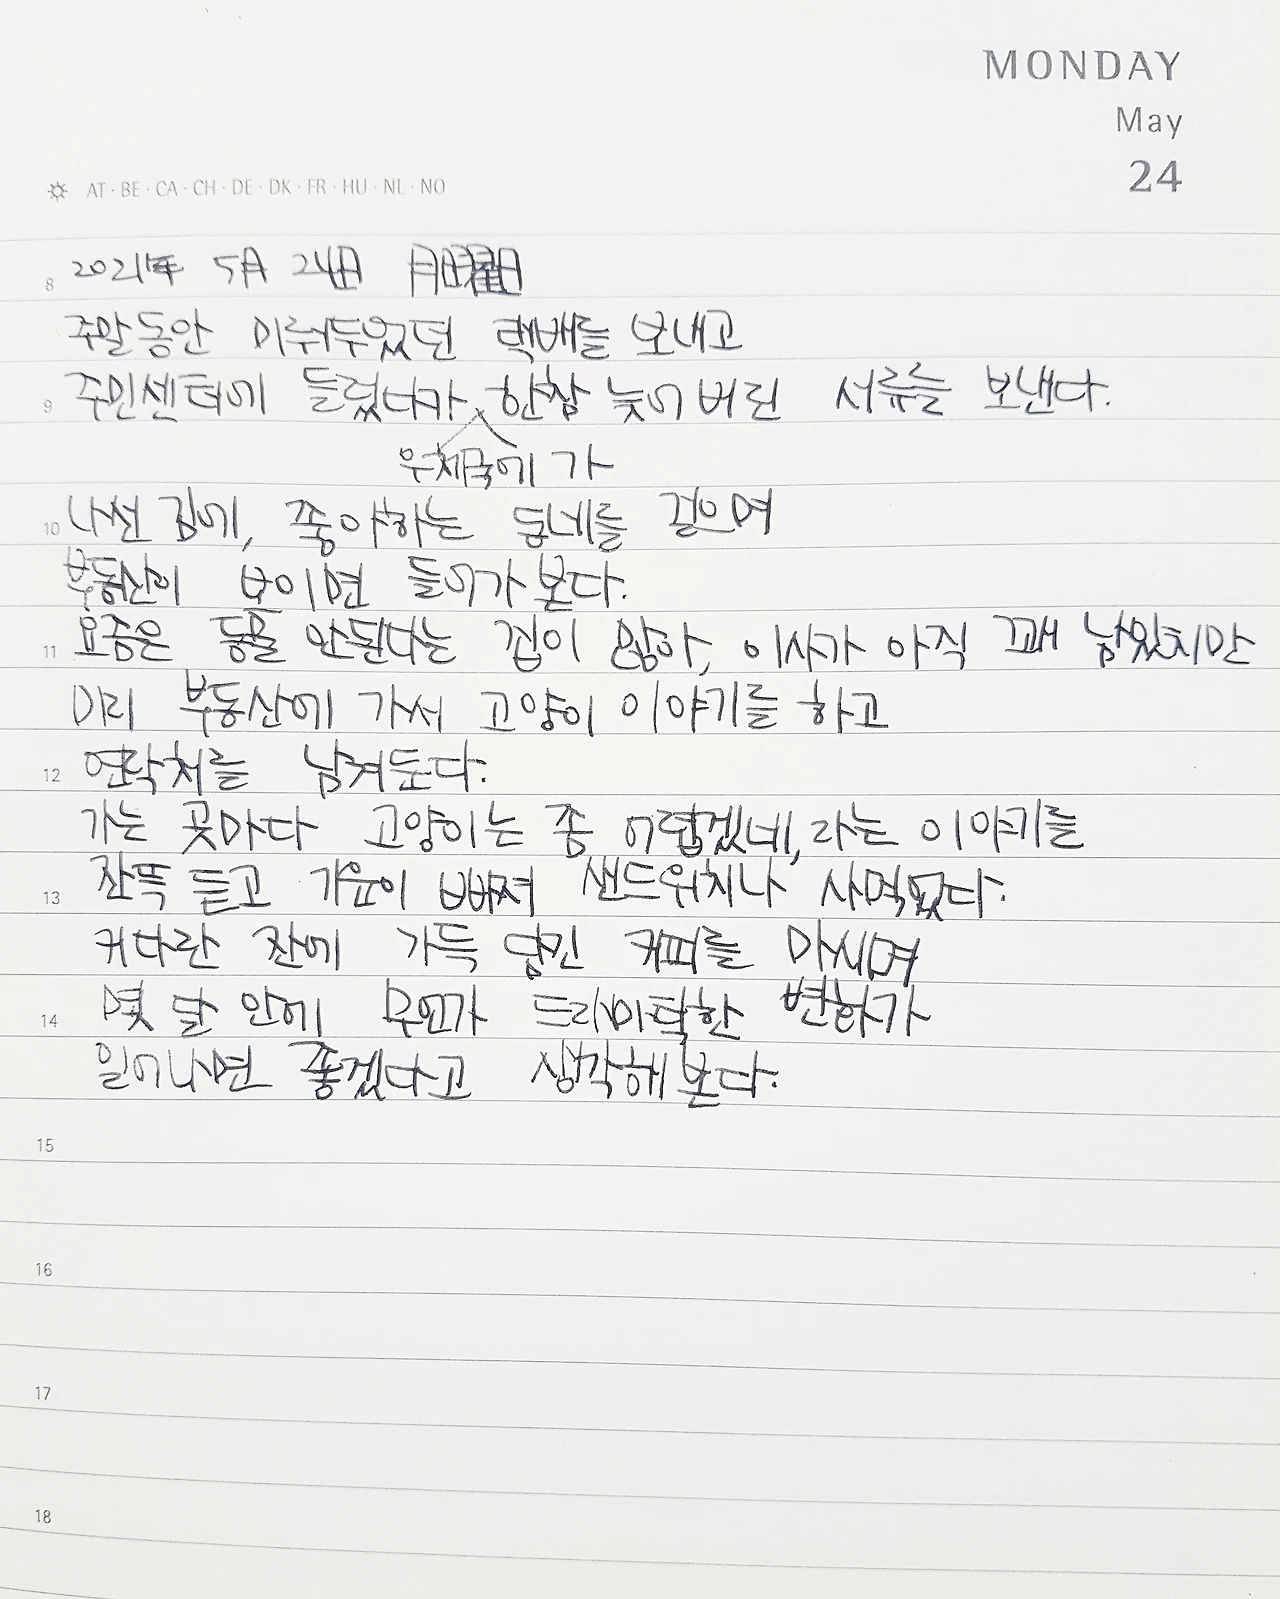 MONDAY
May
24
AT · BE · CA · CH · DE · DK · FR · HU · NL · NO
8 2021年 5月 24日 月曜日
주말동안 미뤄두었던 택배를 보내고
9 주민센터에 들렀다가 한참 늦어버린 서류를 보낸다.
우체국에 가
10 나선 김에, 좋아하는 동네를 걸으며
부동산이 보이면 들어가본다.
11 요즘은 동물 안된다는 집이 많아, 이사가 아직 꽤 남았지만
미리 부동산에 가서 고양이 이야기를 하고
12 연락처를 남겨둔다.
가는 곳마다 고양이는 좀 어렵겠네, 라는 이야기를
13 잔뜩 듣고 기운이 빠져 샌드위치나 사먹었다.
커다란 잔에 가득 담긴 커피를 마시며
14 몇 달 안에 뭔가 드라마틱한 변화가
일어나면 좋겠다고 생각해본다.
15
16
17
18